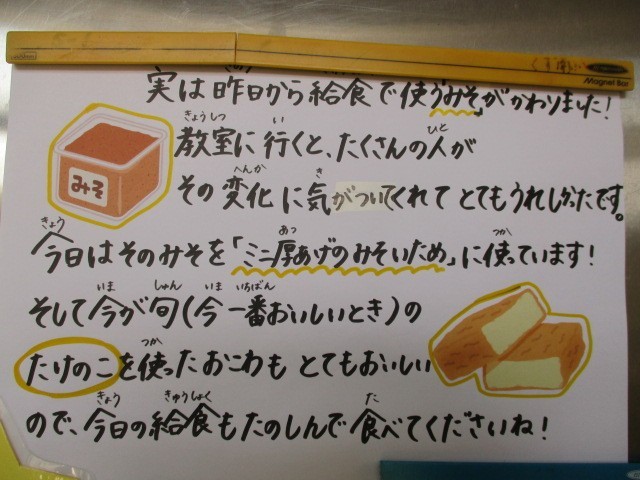 実は昨日から給食で使う「みそ」がかわりました！
教室に行くと、たくさんの人が
その変化に気がついてくれてとてもうれしかったです。
今日はそのみそを「ミニ厚あげのみそいため」に使っています！
そして今が旬(今一番おいしいとき)の
たけのこを使ったおこわもとてもおいしい
ので、今日の給食もたのしんで食べてくださいね！
みそ
Magnet Bar